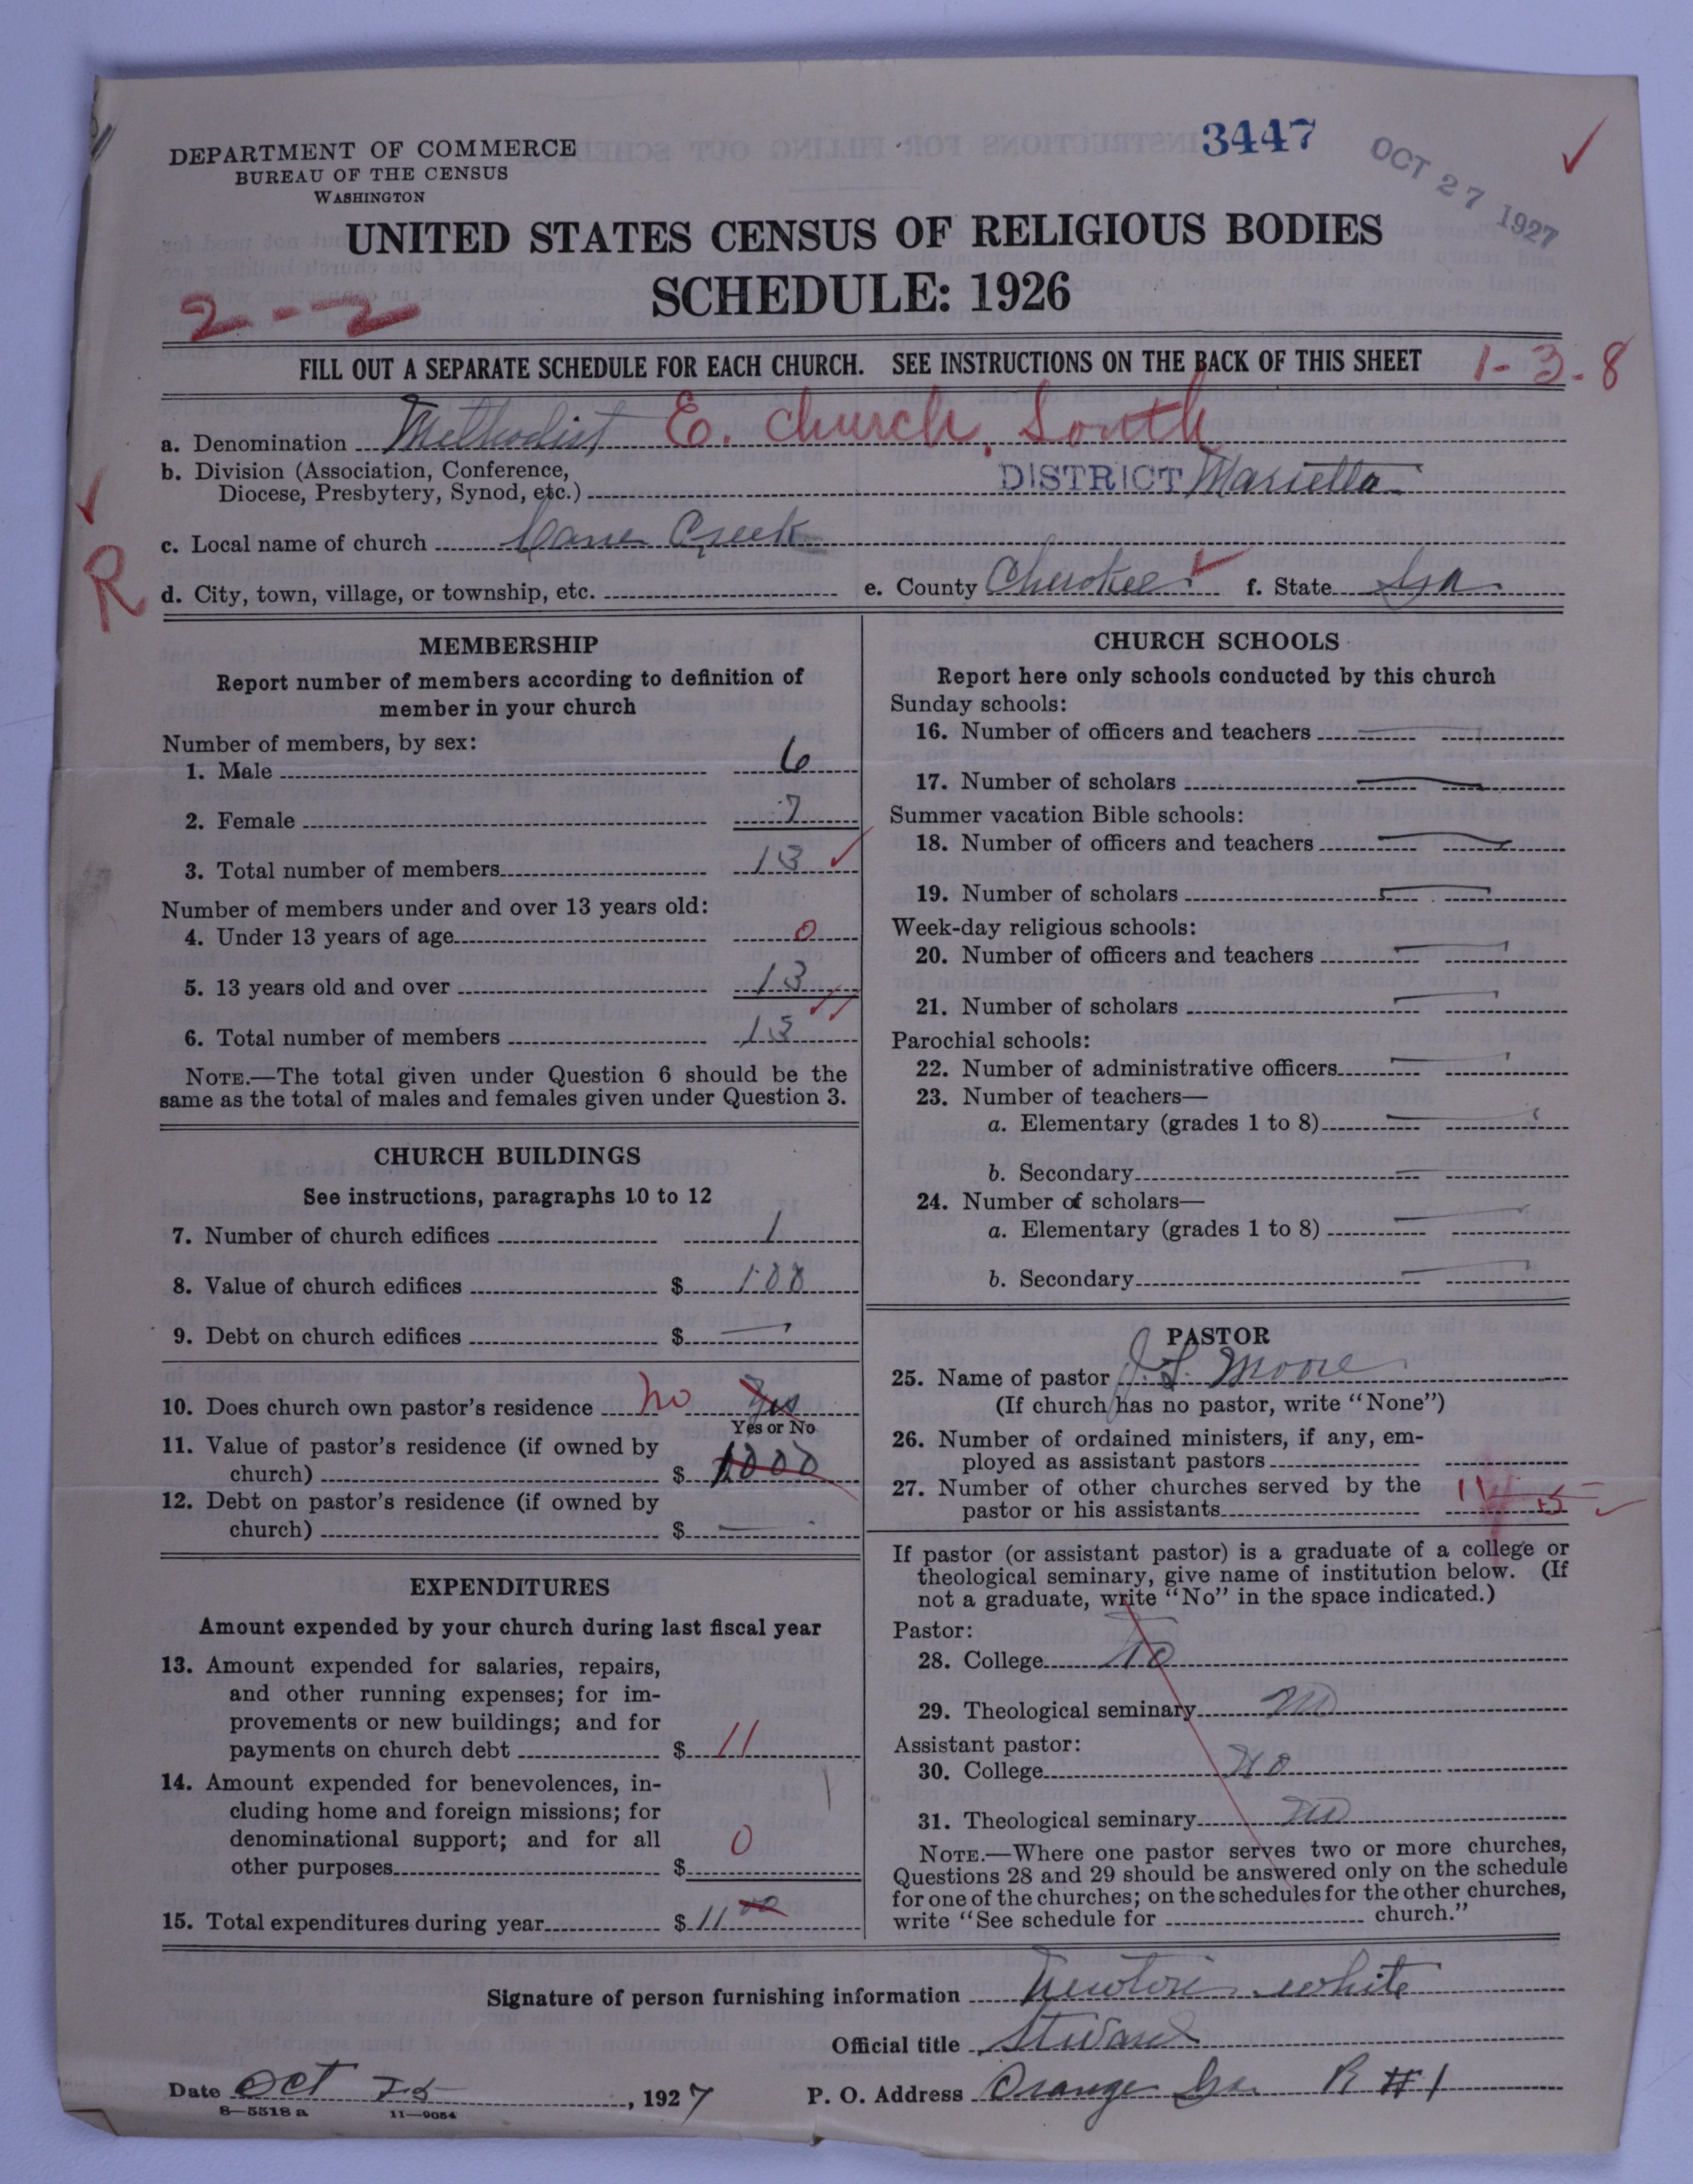 3447
OCT 27 1927
DEPARTMENT OF COMMERCE
BUREAU OF THE CENSUS
WASHINGTON
UNITED STATES CENSUS OF RELIGIOUS BODIES
SCHEDULE: 1926
2--2
FILL OUT A SEPARATE SCHEDULE FOR EACH CHURCH. SEE INSTRUCTIONS ON THE BACK OF THIS SHEET
1-3-8
a. Denomination Methodist E. Church, South
b. Division (Association, Conference,
Diocese, Presbytery, Synod, etc.) DISTRICT Marietta
c. Local name of church Cane Creek
R
d. City, town, village, or township, etc. e. County Cherokee f. State Ga
MEMBERSHIP
Report number of members according to definition of
member in your church
Number of members, by sex:
1. Male 6
2. Female 7
3. Total number of members 13
Number of members under and over 13 years old:
4. Under 13 years of age 0
5. 13 years old and over 13
6. Total number of members 13
NOTE.—The total given under Question 6 should be the
same as the total of males and females given under Question 3.
CHURCH BUILDINGS
See instructions, paragraphs 10 to 12
7. Number of church edifices 1
8. Value of church edifices $ 100
9. Debt on church edifices $ —
10. Does church own pastor's residence no Yes
Yes or No
11. Value of pastor's residence (if owned by
church) $ 1000
12. Debt on pastor's residence (if owned by
church) $ —
EXPENDITURES
Amount expended by your church during last fiscal year
13. Amount expended for salaries, repairs,
and other running expenses; for im-
provements or new buildings; and for
payments on church debt $ 11
14. Amount expended for benevolences, in-
cluding home and foreign missions; for
denominational support; and for all
other purposes $ 0
15. Total expenditures during year $ 11 00
CHURCH SCHOOLS
Report here only schools conducted by this church
Sunday schools:
16. Number of officers and teachers
17. Number of scholars
Summer vacation Bible schools:
18. Number of officers and teachers
19. Number of scholars
Week-day religious schools:
20. Number of officers and teachers
21. Number of scholars
Parochial schools:
22. Number of administrative officers
23. Number of teachers—
a. Elementary (grades 1 to 8)
b. Secondary
24. Number of scholars—
a. Elementary (grades 1 to 8)
b. Secondary
PASTOR
25. Name of pastor J. L. Moore
(If church has no pastor, write "None")
26. Number of ordained ministers, if any, em-
ployed as assistant pastors
27. Number of other churches served by the
pastor or his assistants
If pastor (or assistant pastor) is a graduate of a college or
theological seminary, give name of institution below. (If
not a graduate, write "No" in the space indicated.)
Pastor:
28. College No
29. Theological seminary No
Assistant pastor:
30. College No
31. Theological seminary No
NOTE.—Where one pastor serves two or more churches,
Questions 28 and 29 should be answered only on the schedule
for one of the churches; on the schedules for the other churches,
write "See schedule for church."
Signature of person furnishing information Newton White
Official title Steward
Date Oct 25, 1927 P. O. Address Orange Ga. R #1
8—5518 a 11—9054